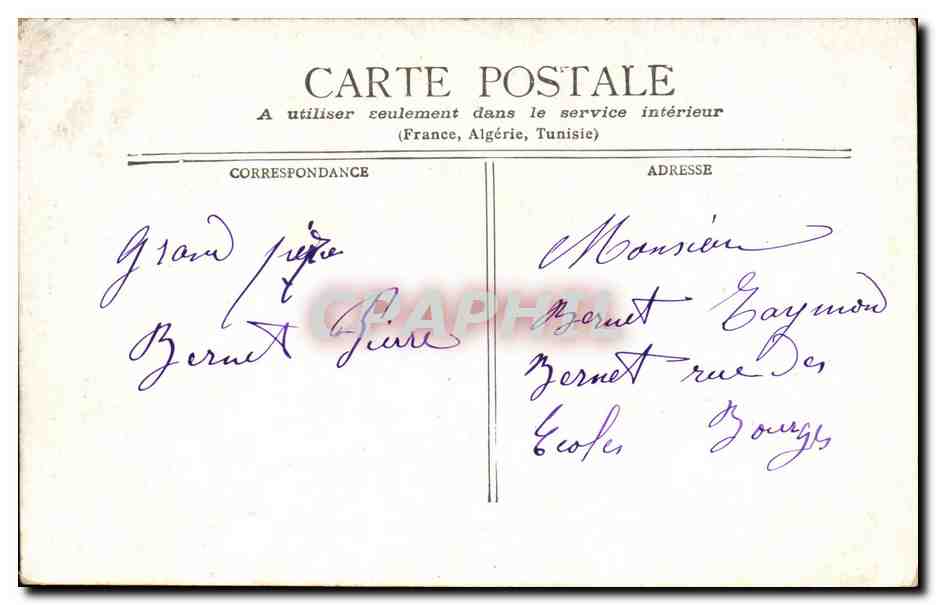 CARTE POSTALE
A utiliser seulement dans le service intérieur
(France, Algérie, Tunisie)
CORRESPONDANCE
Grand père
Bernet Pierre
ADRESSE
Monsieur
Bernet Raymond
Bernet rue des
Ecoles Bourges